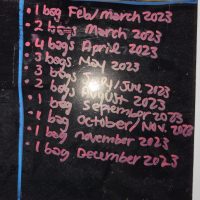 • 1 bag Feb/March 2023
• 2 bags March 2023
• 4 bags April 2023
• 3 bags May 2023
• 3 bags /June 2023
• 2 bags August 2023
• 1 bag September 2023
• 1 bag october/Nov. 2023
• 1 bag november 2023
• 1 bag December 2023